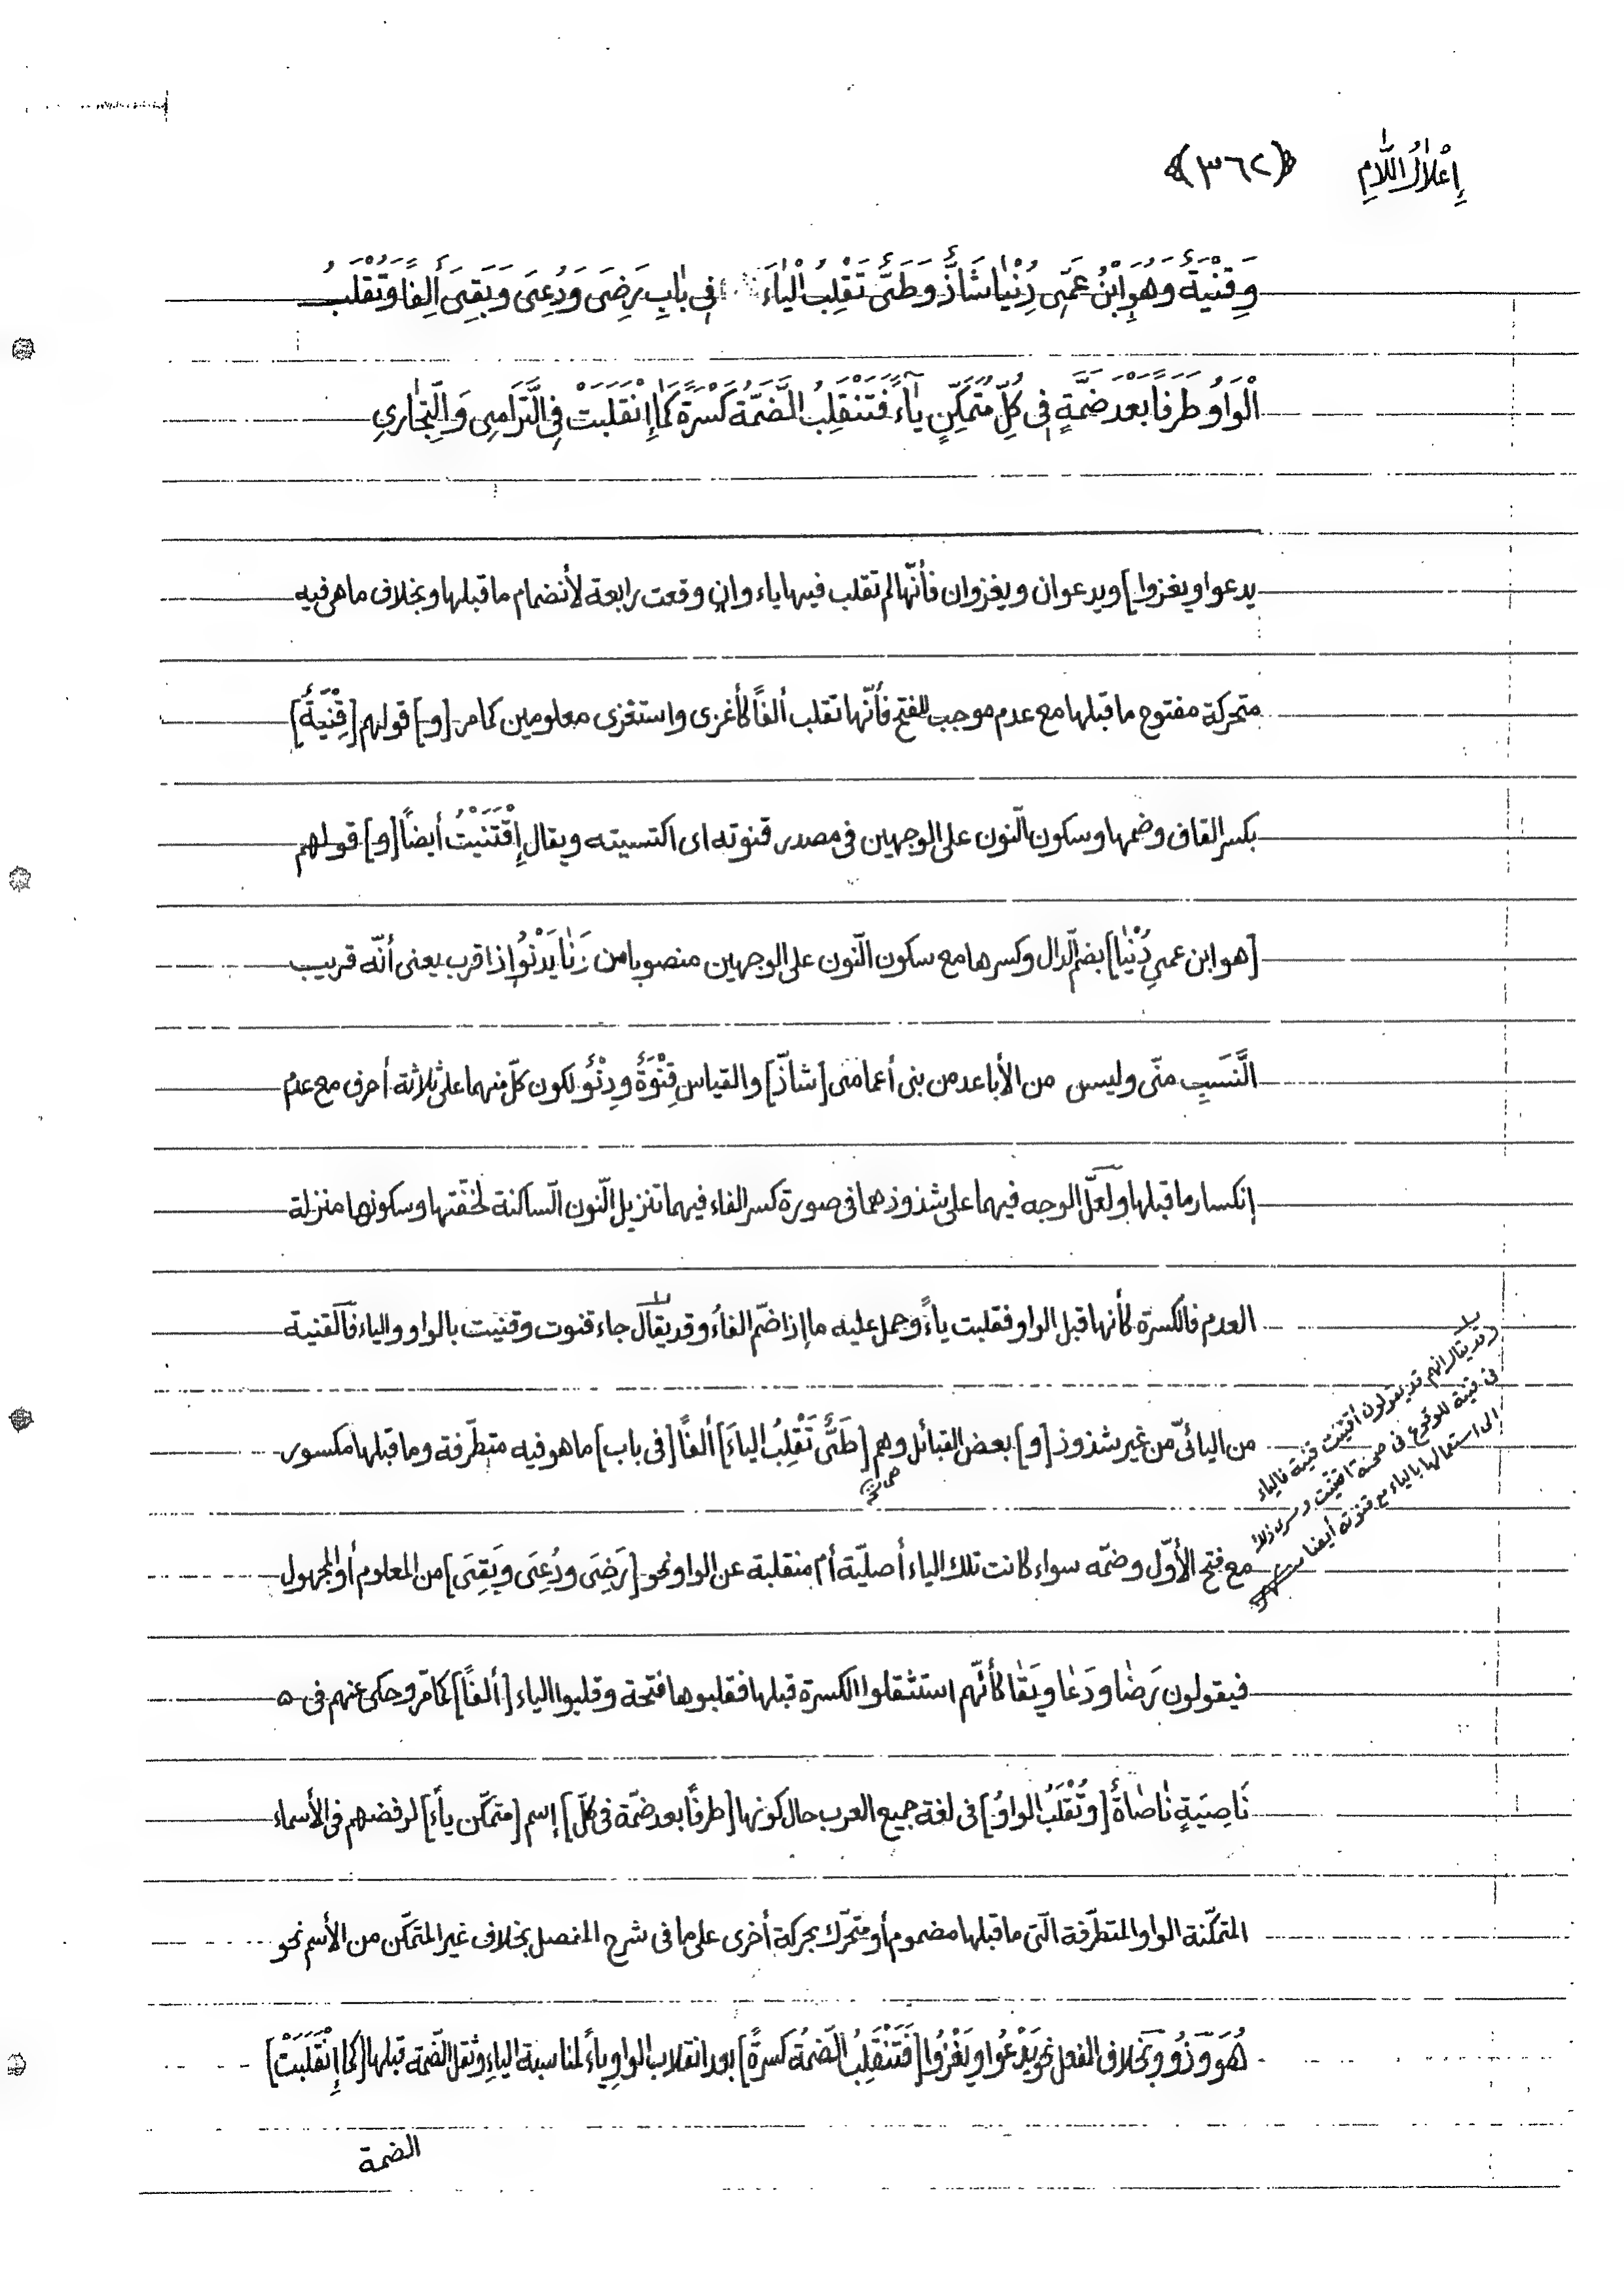 إِعْلَالُ اللَّامِ ﴿٣٦٢﴾
وَقِنْيَةٌ وَهُوَ ابْنُ عَمِّى دِنْيًا شَاذٌّ وَطَىٌّ تَقْلِبُ الْيَاءَ فِى بَابِ رَضِىَ وَدُعِىَ وَبَقِىَ أَلِفًا وَتُقْلَبُ
الْوَاوُ طَرَفًا بَعْدَ ضَمَّةٍ فِى كُلِّ مُتَمَكِّنٍ يَاءً فَتَنْقَلِبُ الضَّمَّةُ كَسْرَةً كَمَا إِنْقَلَبَتْ فِى التَّرَامِى وَالتَّجَارِى
يدعوا ويغزوا] ويدعوان ويغزوان فأنّها لم تقلب فيها ياء وان وقعت رابعة لأنضمام ما قبلها وبخلاف ما هى فيه
متحركة مفتوح ما قبلها مع عدم موجب للفتح فأنّها تقلب ألفاً كأغزى واستغزى معلومين كما مر [و] قولهم [قِنْيَةٌ]
بكسر القاف وضمها وسكون النّون على الوجهين فى مصدر قنوته اى اكتسيته ويقال إِقْتَنَيْتُ أيضاً [و] قولهم
[هو ابن عمى دُنْيَا] بضم الدّال وكسرها مع سكون النّون على الوجهين منصوبا من دَنَا يَدْنُو إذا قرب يعنى أنّه قريب
النَّسَبِ منّى وليس من الأباعد من بنى أعمامى [شاذّ] والقياس قِنْوَةٌ ودِنْوٌ لكون كلّ منهما على ثلاثة أحرف مع عدم
إنكسار ما قبلها ولعلّ الوجه فيهما على شذوذهما فى صورة كسر الفاء فيهما تنزيل النّون السّاكنة لخفّتها وسكونها منزلة
العدم فالكسرة كأنها قبل الواو فقلبت ياءً وحمل عليه ما إذا ضمّ الفاءُ وقد يقال جاء قنوت وقنيت بالواو والياء فالقنية
من اليائىّ من غير شذوذ [و] بعض القبائل وهم [طَىٌّ تَقْلِبُ الياءَ] ألفاً [فى باب] ما هو فيه متطّرفة وما قبلها مكسور
مع فتح الأوّل وضمّه سواء كانت تلك الياء أصليّة أم منقلبة عن الواو نحو [رَضِىَ ودُعِىَ وبَقِىَ] من المعلوم أو المجهول
وقد يقال انهم قد يقولون اقتنيت قنية فالياء
فى قنية للوقوع فى صحبة اقتنيت
الى استعمالها بالياء مع قنوته أيضا
فيقولون رَضَا ودَعَا وبَقَا كأنّهم استثقلوا الكسرة قبلها فقلبوها فتحة وقلبوا الياء [ألفًا] كما مّر وحكى عنهم فى
نَاصِيَةٍ نَاصَاةٌ [وتُقْلَبُ الواوُ] فى لغة جميع العرب حال كونها [طرفًا بعد ضمّة فى كلّ] إسم [متمكّن ياء] لرفضهم فى الأسماء
المتمكّنة الواو المتطّرفة الّتى ما قبلها مضموم أو متحّرك بحركة أخرى على ما فى شرح المفصل بخلاف غير المتمكّن من الأسم نحو
هُوَ وذُو وبخلاف الفعل نحو يَدْعُوا ويَغْزُوا [فَتَنْقَلِبُ الضّمّةُ كَسرةً] بعد انقلاب الواو ياءً لمناسبة الياءِ وثقل الضّمة قبلها [كما إِنْقَلَبَتْ]
الضمة